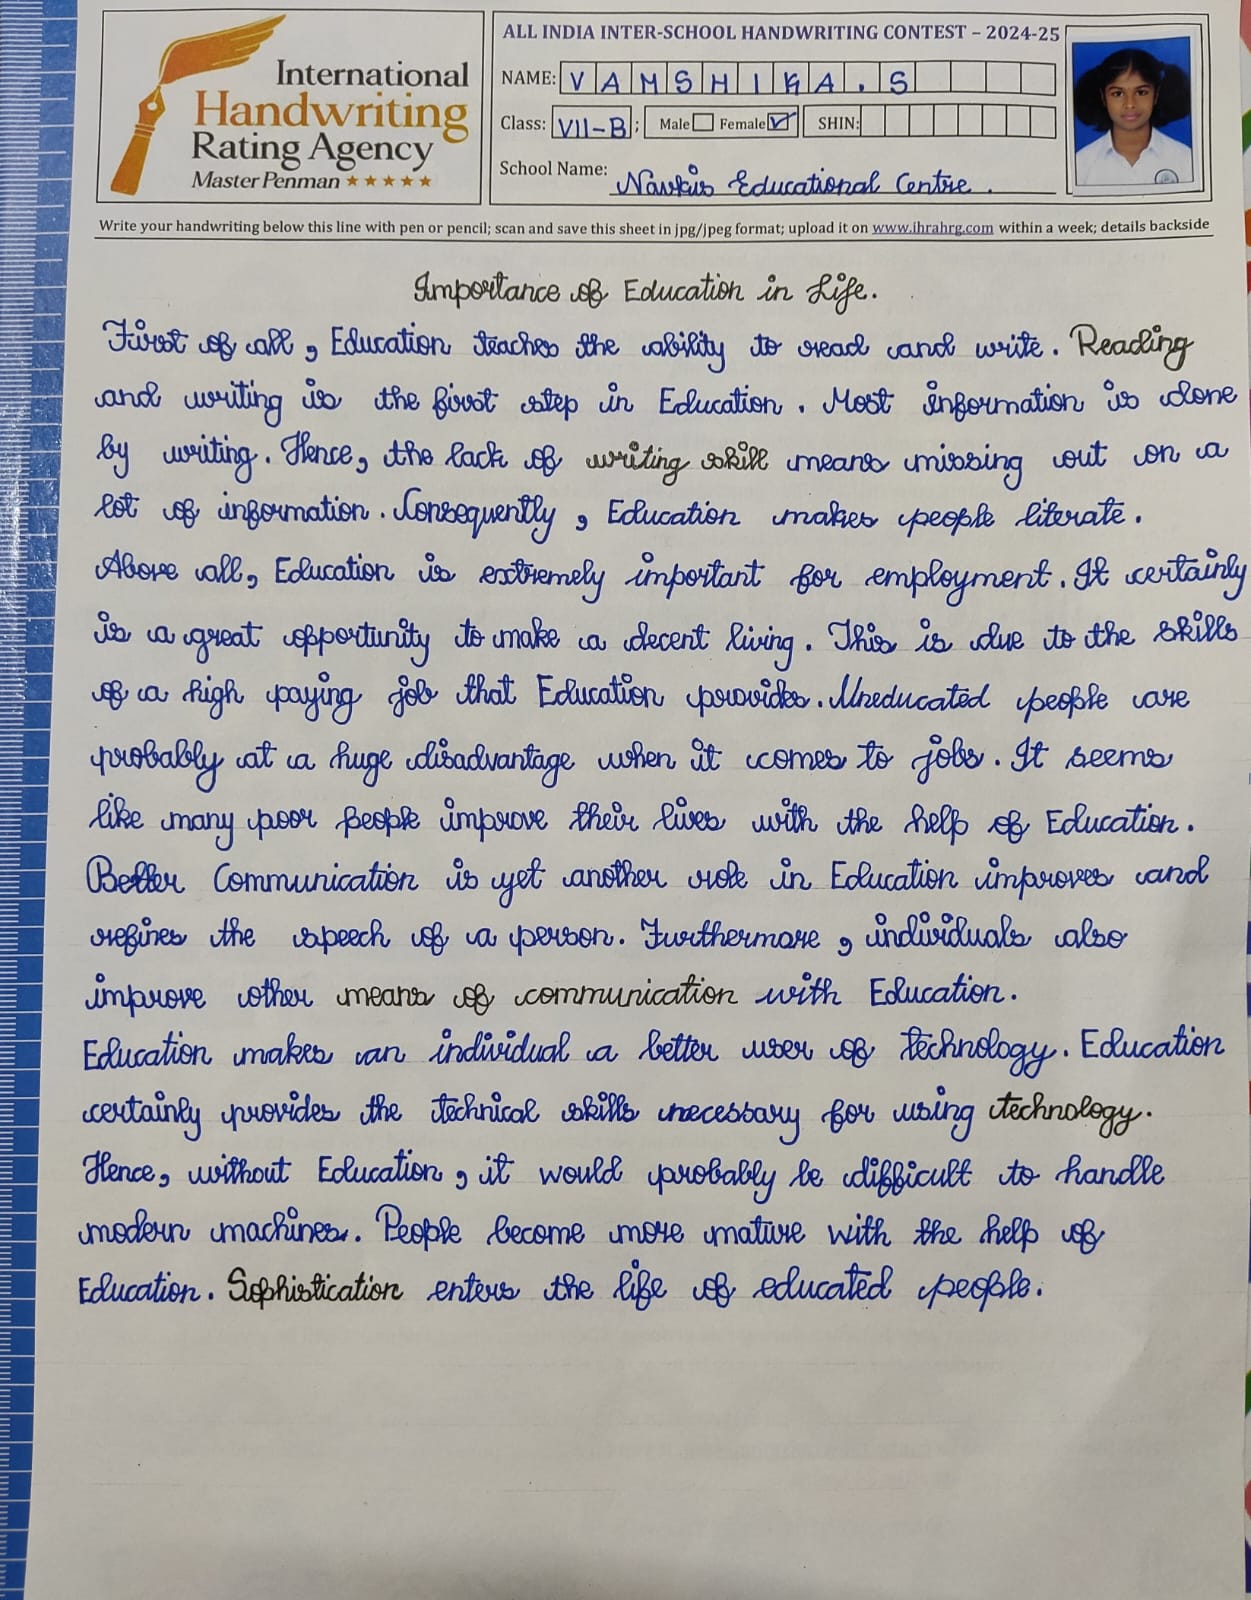 International
Handwriting
Rating Agency
Master Penman ★★★★★
ALL INDIA INTER-SCHOOL HANDWRITING CONTEST – 2024-25
NAME: VAMSHIKA.S
Class: VII-B; Male Female ✓ SHIN:
School Name: Navkis Educational Centre.
Write your handwriting below this line with pen or pencil; scan and save this sheet in jpg/jpeg format; upload it on www.ihrahrg.com within a week; details backside
Importance of Education in Life.
First of all, Education teaches the ability to read and write. Reading
and writing is the first step in Education. Most information is done
by writing. Hence, the lack of writing skill means missing out on a
lot of information. Consequently, Education makes people literate.
Above all, Education is extremely important for employment. It certainly
is a great opportunity to make a decent living. This is due to the skills
of a high paying job that Education provides. Uneducated people are
probably at a huge disadvantage when it comes to jobs. It seems
like many poor people improve their lives with the help of Education.
Better Communication is yet another role in Education improves and
refines the speech of a person. Furthermore, individuals also
improve other means of communication with Education.
Education makes an individual a better user of technology. Education
certainly provides the technical skills necessary for using technology.
Hence, without Education, it would probably be difficult to handle
modern machines. People become more mature with the help of
Education. Sophistication enters the life of educated people.